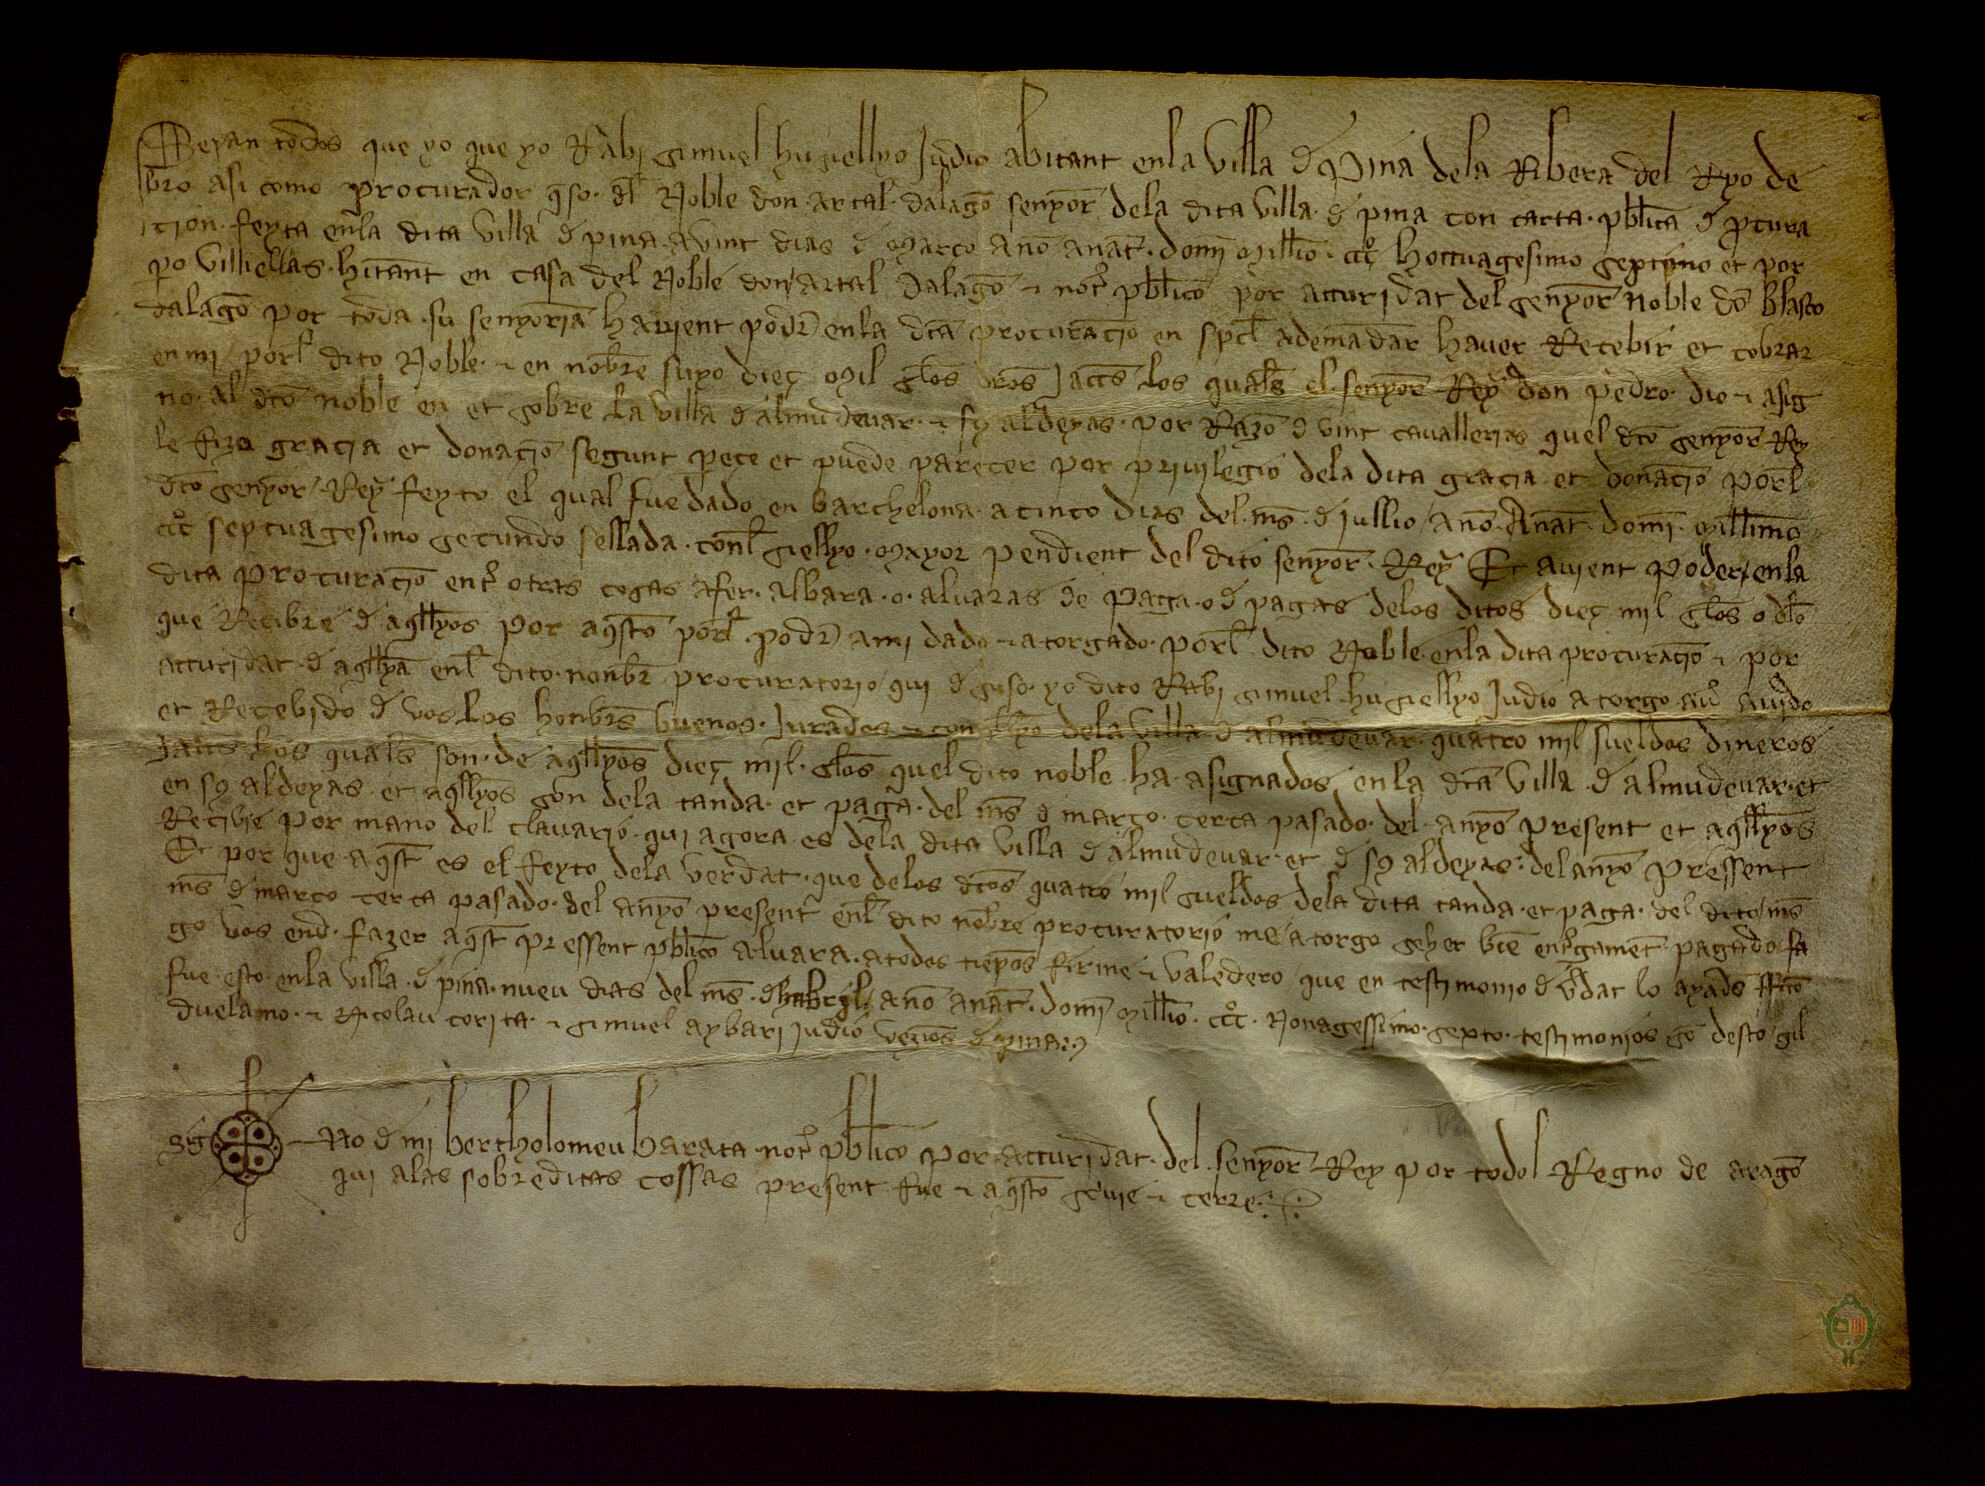 Sepan todos que yo que yo Rabi simuel huziellyo Judio abitant enla Villa d' Pina dela Ribera del Ryo de
bro asi como procurador q̃ so. dl Noble don artal dalagõ senyor̃ dela dita villa d' pina con carta pbl̃ica d' pcura
cion feyta en la dita villa d' pina avint dias d' março ano anat̃. domj̃ Mill̃io. ccc̊ hoctuagesimo septimo et por
po villiellas. hitant en casa del Noble don artal dalagõ ⁊ not̃ pbl̃ico por acturidat del senyor̃ noble dõ blasco
dalagõ por toda su senyoria havient podr̃ en la dc̃a procuraciõ en spc̃l ademãdar haver Recebir et cobrar
en mj por̃l dito Noble ⁊ en nõbre suyo dieç Mil sl̃os drõs Jaccs̃ los quals̃ el senyor̃ Rey don pedro dio ⁊ asig
no al dc̃o noble en et sobre la villa d' almudevar ⁊ sȝ aldeyas por Razõ d' vint cavallerias quel dc̃o senyor̃ Rey
le fizo gracia et donaciõ segunt peçe et puede parecer por privilegio dela dita gracia et donaciõ por̃l
dc̃o senyor Rey feyto el qual fue dado en barchelona a cinco dias del ms̃ d' jullio anõ Anat̃ domj̃ mill̃imo
ccc̊ septuagesimo secundo sellada coñl siellyo mayor pendient del dito senyor̃ Rey Et avient poder en la
dita procuraciõ ent̃ otras cosas afer albara o alvaras de paga o d' pagas delos ditos dieç mil sl̃os o dl̃o
que Recibre d' aql̃lyos por aq̃sto por̃l podr̃ ami dado ⁊ atorgado por̃l dito Noble en la dita procuraciõ ⁊ por
acturidat d' aql̃lya eñl dito nonbr̃ procuratorio qui d' suso yo dito Rabi simuel huziellyo Judio atorgo av̾ avido
et Recebido d' vos los honbrs̃ buenos Jurados ⁊ con dela villa d' almudevar quatro mil sueldos dineros
Jaccs̃ los quals̃ son de aql̃lyos dieç mil sl̃os quel dito noble ha asignados en la dc̃a villa d' almudevar et
en sȝ aldeyas et aql̃lyos son dela tanda et paga del ms̃ d' março cerca pasado del anyo present et aql̃lyos
Recibie por mano del clavario qui agora es dela dita villa d' almudevar et d' sȝ aldeyas del anyo pressent
Et por que aq̃st es el feyto dela verdat que delos dc̃os quatro mil sueldos dela dita tanda et paga del dito ms̃
ms̃ d' março cerca pasado del anyo present eñl dito nõbre procuratorio me atorgo seyer biẽ ent̃gament pagado fa
go vos end fazer aq̃st pressent pbl̃ico alvara a todos tiepos firme ⁊ valedero que en testimonio d' v̾dat lo ayads̃ ffc̃o
fue esto en la villa d' pina nueu dias del ms̃ d' habril anõ anat̃ domj̃ Mill̃io ccc̊ Nonagessimo sexto testimonios sõ desto gil
duelamo ⁊ Nicolau corita ⁊ simuel aybari judio vezios̃ d' pina
Sig No d' mj bertholomeu barata not̃ pbl̃ico por acturidat del senyor̃ Rey por todol Regno de aragõ
qui alas sobreditas cossas present fue ⁊ aq̃sto sc̾uie ⁊ cerre